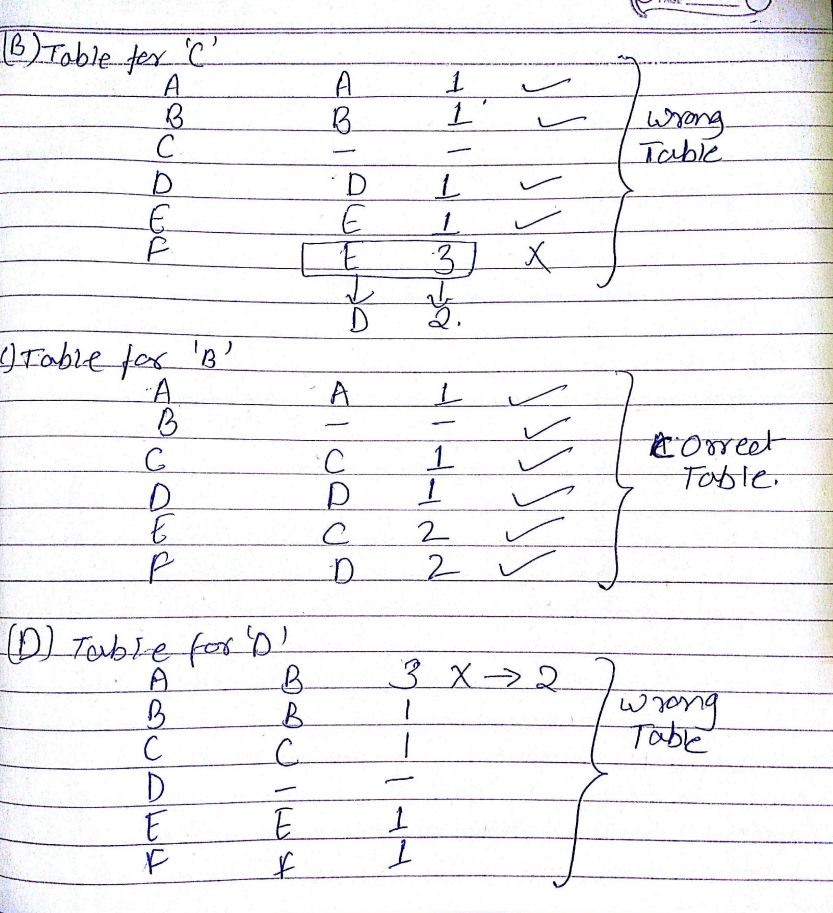 (B) Table for 'C'
A A 1 ✓
B B 1 ✓
C – –
D D 1 ✓
E E 1 ✓
F E 3 X
↓ ↓
D 2.
} Wrong
Table
) Table for 'B'
A A 1 ✓
B – – ✓
C C 1 ✓
D D 1 ✓
E C 2 ✓
F D 2 ✓
} Correct
Table.
(D) Table for 'D'
A B 3 X → 2
B B 1
C C 1
D – –
E E 1
F F 1
} Wrong
Table